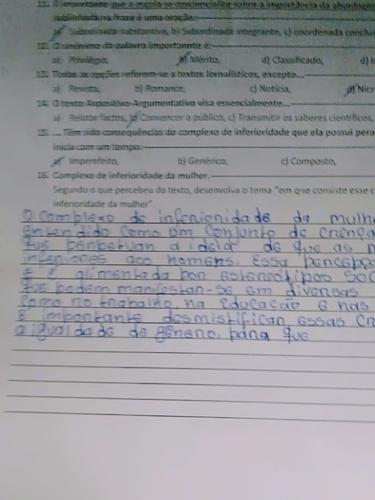 11. É importante que a escola se consciencialize sobre a importância da abordagem
sublinhada na frase é uma oração:
a) Subordinada substantiva, b) Subordinada integrante, c) coordenada
12. O sinónimo da palavra importante é:
a) Privilégio, b) Mérito, d) Classificado,
13. Todas as opções referem-se a textos Jornalísticos, excepto...
a) Revista, b) Romance, c) Notícia,
14. O texto Expositivo-Argumentativo visa essencialmente...
a) Relatar factos, b) Convencer o público, c) Transmitir os saberes científicos,
15. ... Têm sido consequências do complexo de inferioridade que ela possui
inicia com um tempo:
a) Imperefeito, b) Genérico, c) Composto,
16. Complexo de inferioridade da mulher.
Segundo o que percebeu do texto, desenvolva o tema "em que consiste esse c
inferioridade da mulher".
O Complexo de inferioridade da mulhe
entendido como um conjunto de crença
que perpetuam a ideia de que as m
inferiores aos homens. Essa percepçã
e é alimentada por estereótipos soc
que podem manifestar-se em diversas
como no trabalho, na Educação e nas
É importante desmistificar essas Cr
a igualdade de gênero, para que